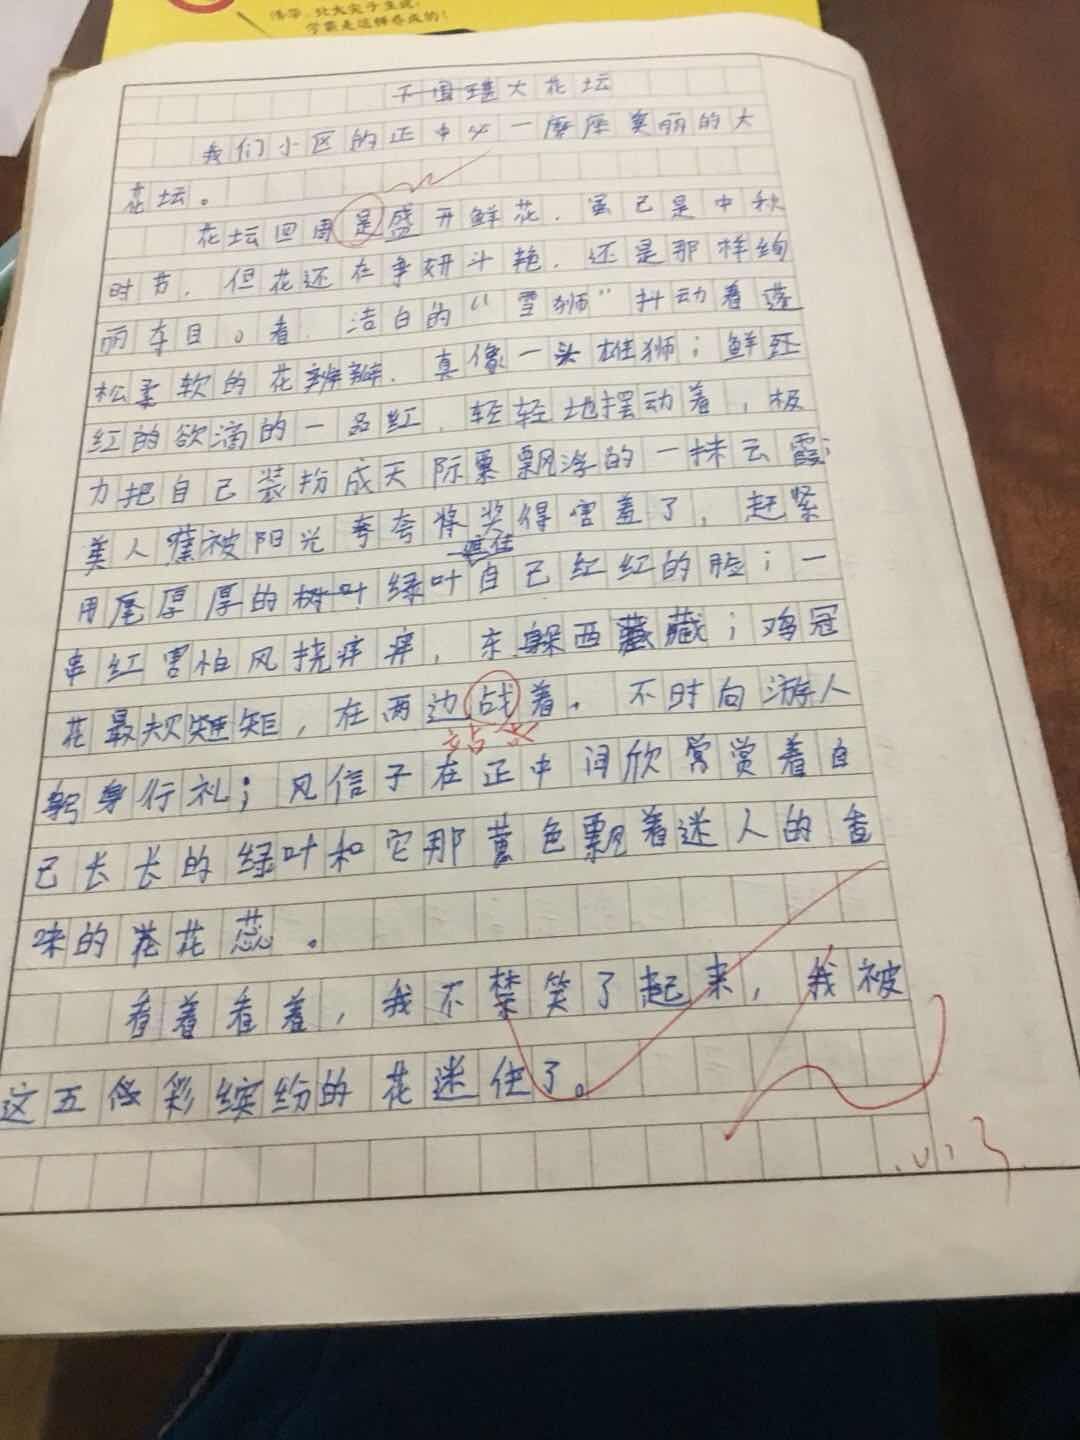 清华、北大尖子生说:
学霸是这样养成的!
大花坛
我们小区的正中心一座座美丽的大
花坛。
花坛四周是盛开鲜花,虽已是中秋
时节,但花还在争妍斗艳,还是那样绚
丽夺目。看,洁白的“雪狮”抖动着蓬
松柔软的花瓣,真像一头雄狮;鲜
红的欲滴的一品红,轻轻地摆动着,极
力把自己装扮成天际飘浮的一抹云霞;
美人蕉被阳光夸夸奖得害羞了,赶紧
遮住
用厚厚的绿叶自己红红的脸;一
串红害怕风挠痒痒,东躲西藏;鸡冠
花最规矩,在两边战着,不时向游人
站
躬身行礼;风信子在正中间欣赏着自
己长长的绿叶和它那黄色飘着迷人的香
味的花蕊。
看着看着,我不禁笑了起来,我被
这五彩缤纷的花迷住了。